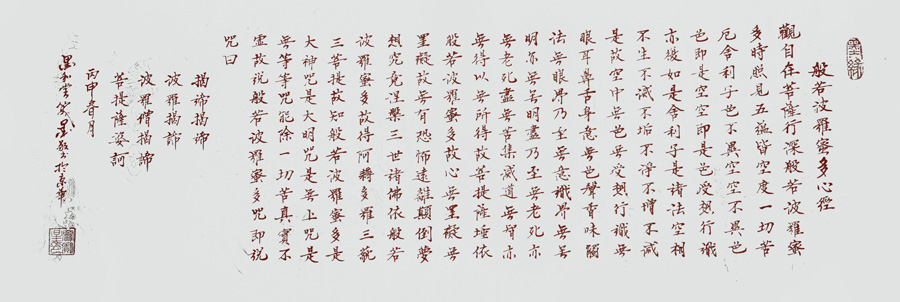 般若波羅蜜多心經
觀自在菩薩行深般若波羅蜜
多時照見五蘊皆空度一切苦
厄舍利子色不異空空不異色
色即是空空即是色受想行識
亦復如是舍利子是諸法空相
不生不滅不垢不淨不增不減
是故空中無色無受想行識無
眼耳鼻舌身意無色聲香味觸
法無眼界乃至無意識界無無
明亦無無明盡乃至無老死亦
無老死盡無苦集滅道無智亦
無得以無所得故菩提薩埵依
般若波羅蜜多故心無罣礙無
罣礙故無有恐怖遠離顛倒夢
想究竟涅槃三世諸佛依般若
波羅蜜多故得阿耨多羅三藐
三菩提故知般若波羅蜜多是
大神咒是大明咒是無上咒是
無等等咒能除一切苦真實不
虛故說般若波羅蜜多咒即說
咒曰
揭諦揭諦
波羅揭諦
波羅僧揭諦
菩提薩婆訶
丙申春月